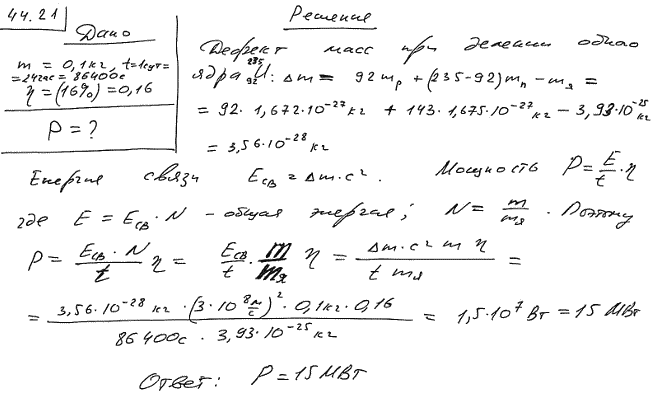 44.21
Дано
m = 0,1кг, t=1сут=
=24час=86400с
η=(16%)=0,16
P = ?
Решение
Дефект масс при делении одного
ядра ²³⁵₉₂U: Δm = 92 mₚ + (235-92) mₙ - mя =
= 92 · 1,672·10⁻²⁷кг + 143 · 1,675·10⁻²⁷кг - 3,93·10⁻²⁵кг
= 3,56·10⁻²⁸кг
Енергия связи Eсв = Δm·c². Мощность P = E/t · η
где E = Eсв · N - общая энергия; N = m/mя. Поэтому
P = Eсв · N/t η = Eсв/t · m/mя η = Δm·c² m η/t mя =
= 3,56·10⁻²⁸ кг · (3·10⁸ м/с)² · 0,1кг · 0,16/86400с · 3,93·10⁻²⁵кг = 1,5·10⁷ Вт = 15 МВт
Ответ: P = 15 МВт